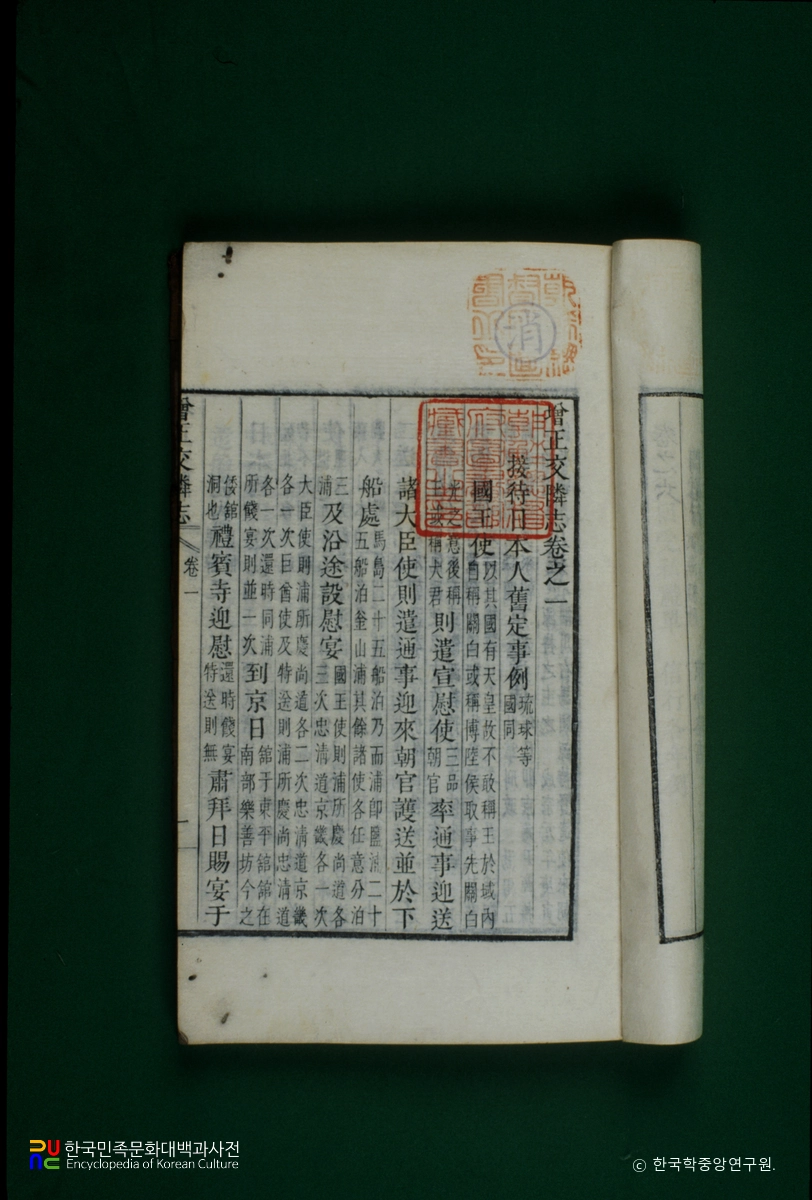 增正交隣志卷之一
接待日本人舊定事例琉球等國同
國王使以其國有天皇故不敢稱王於域內自稱關白或稱博陸侯取事先關白之意後稱或稱大君則遣宣慰使三品朝官率通事迎送
諸大臣使則遣通事迎來朝官護送並於下
船處馬島二十五船泊乃而浦卽鹽浦二十五船泊釜山浦其餘諸使各任意分泊三浦及沿途設慰宴國王使則浦所慶尚道各三次忠淸道京畿各一次
大臣使則浦所慶尚道各二次忠淸道京畿各一次巨酋使及特送則浦所慶尚忠淸道各一次還時同浦所餞宴則並一次到京日舘于東平舘舘在南部樂善坊今之
倭舘洞也禮賓寺迎慰還時餞宴特送則無肅拜日賜宴于
增正交隣志 卷一 一
消
한국민족문화대백과사전
Encyclopedia of Korean Culture
ⓒ 한국학중앙연구원.